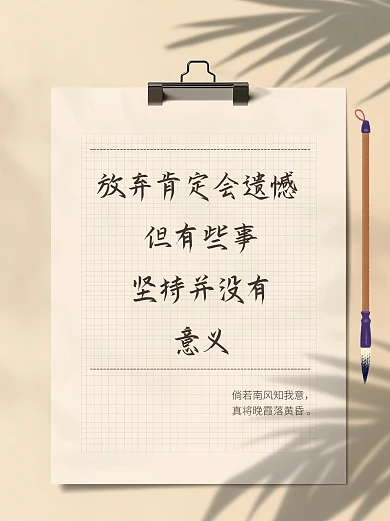 放弃肯定会遗憾
但有些事
坚持并没有
意义
倘若南风知我意，
真将晚霞落黄昏。